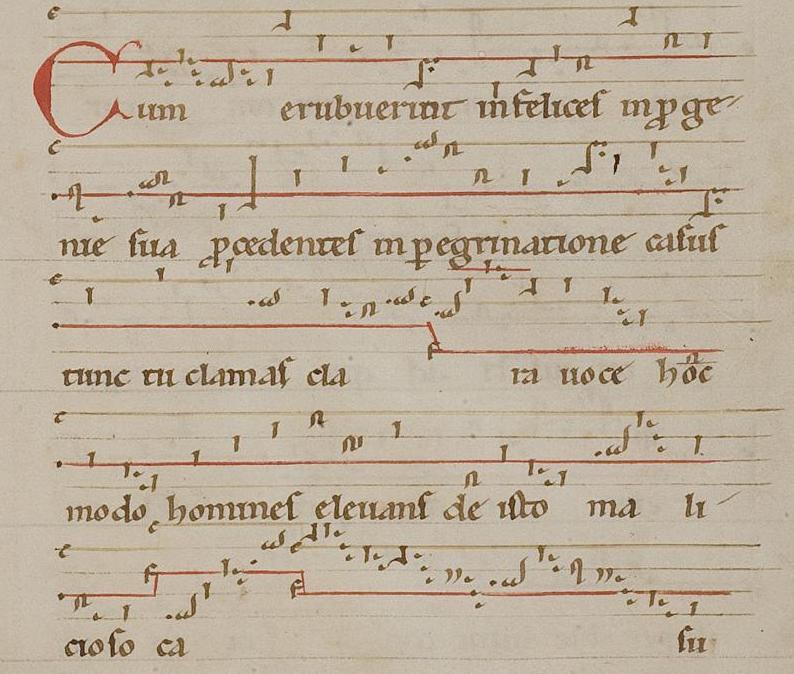 Cum erubuerint infelices in ꝓge-
nie sua ꝓcedentes in ꝑegrinatione casus
tunc tu clamas cla ra uoce hoc
modo homines eleuans de isto ma li-
cioso ca su